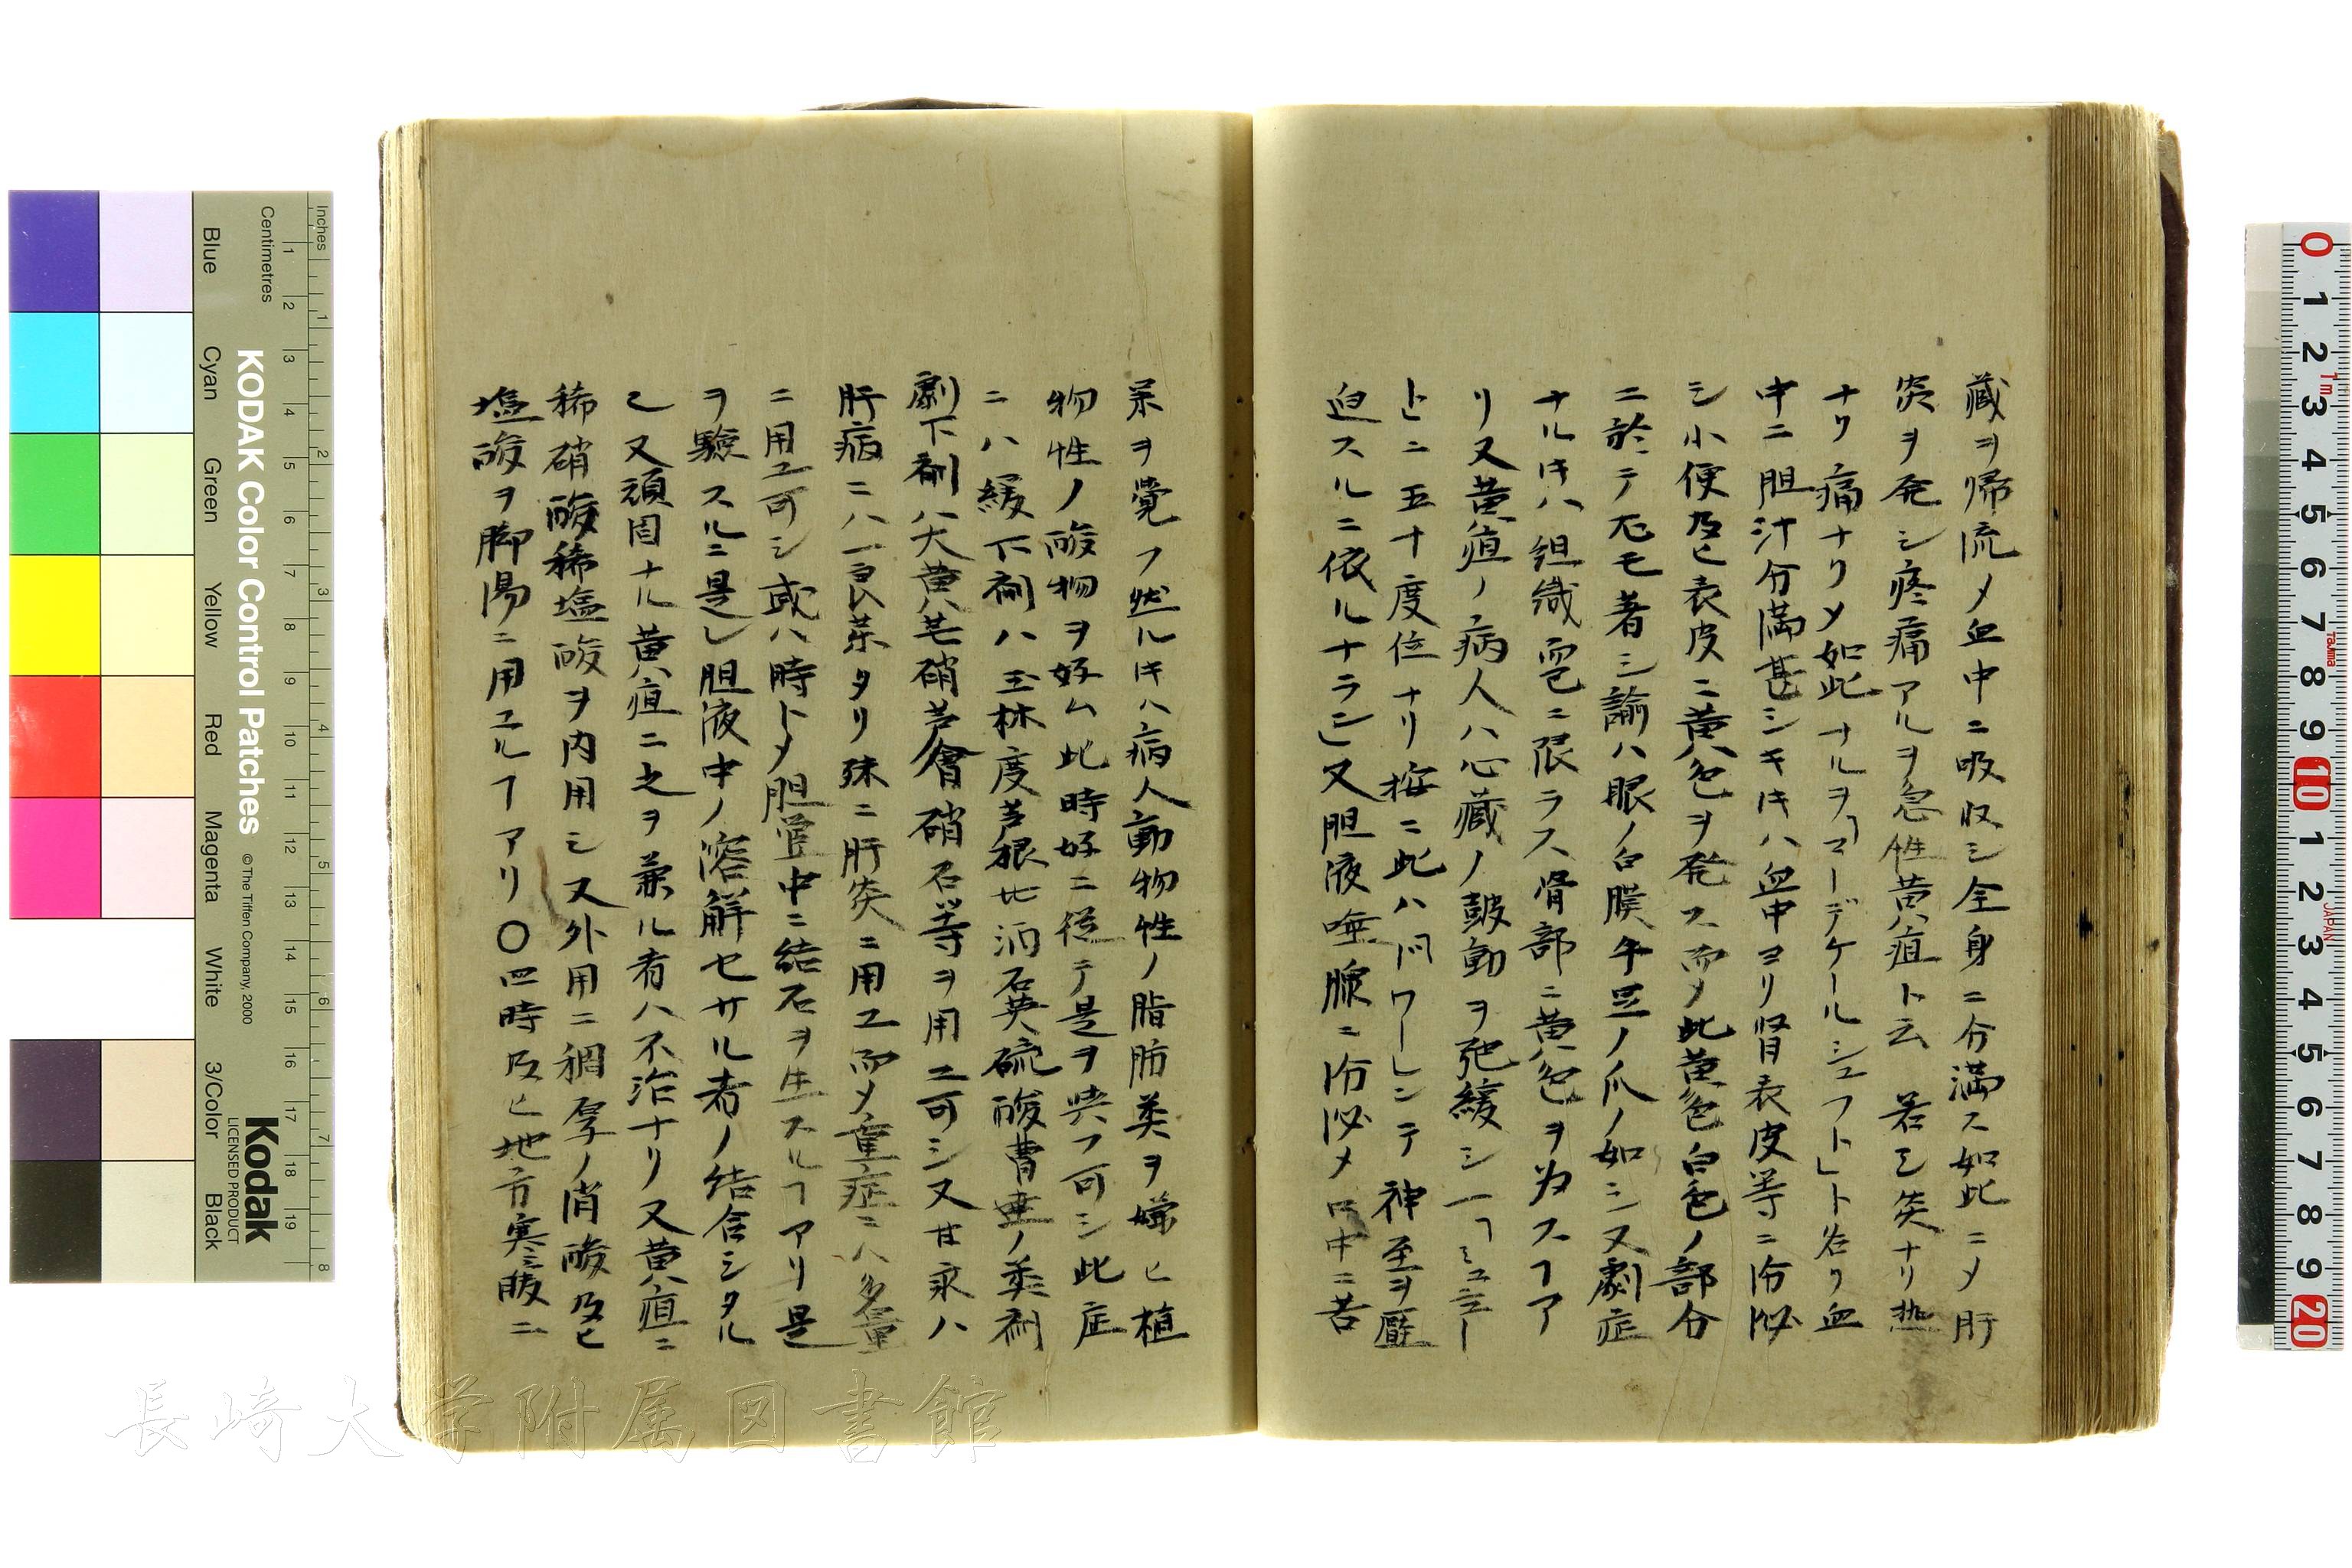 蔵ヲ帰流メ血中ニ吸収シ全身ニ分満ス如此ニメ肝
炎ヲ発シ疼痛アルヲ急性黄疸ト云 若シ炎ナリ熱
ナリ痛ナリメ如此ナルヲ「コーデケールシュフト」ト名ク血
中ニ胆汁分満甚シキ𪜈ハ血中ヨリ腎表皮等ニ分泌
シ小便及ヒ表皮ニ黄色ヲ発ス而メ此黄色白色ノ部分
ニ於テ尤モ著シ諭ハ眼ノ白膜手足ノ爪ノ如シ又劇症
ナル𪜈ハ組織ニ限ラス骨部ニ黄色ヲ為スヿア
リ又黄疸ノ病人ハ心蔵ノ皷動ヲ弛緩シ一「ミニュー
ト」ニ五十度位ナリ按ニ此ハ神至ヲ壓
迫スルニ依ルナラン」又胆液唾腺ニ分泌メ口中ニ苦
味ヲ覚フ然ル𪜈ハ病人動物性ノ脂肪類ヲ嫌ヒ植
物性ノ酸物ヲ好ム此時好ニ従テ是ヲ與フ可シ此症
ニハ緩下剤ハ王林度芦根水酒石英硫酸曹達ノ類剤
劇下剤ハ大黄芒硝芦會硝石等ヲ用ユ可シ又甘汞ハ
肝病ニハ一良薬タリ殊ニ肝炎ニ用ユ而メ重症ニハ多量
ニ用ユ可シ或ハ時トメ胆管中ニ結石ヲ生スルヿアリ是
ヲ験スルニ是レ胆液中ノ溶解セサル者ノ結合シタル
也又頑固ナル黄疸ニ之ヲ兼ル者ハ不治ナリ又黄疸ニ
稀硝酸稀塩酸ヲ内用シ又外用ニ稠厚ノ硝酸及ヒ
塩酸ヲ脚湯ニ用ユルヿアリ〇四時及ヒ地方寒暖ニ
Inches
Centimetres
KODAK Color Control Patches
© The Tiffen Company, 2000
Blue
Cyan
Green
Yellow
Red
Magenta
White
3/Color
Black
Kodak
LICENSED PRODUCT
1 2 3 4 5 6 7 8
1 2 3 4 5 6 7 8 9 10 11 12 13 14 15 16 17 18 19
0 1 2 3 4 5 6 7 8 9 10 1 2 3 4 5 6 7 8 9 20
Tajima
JAPAN
長崎大学附属図書館